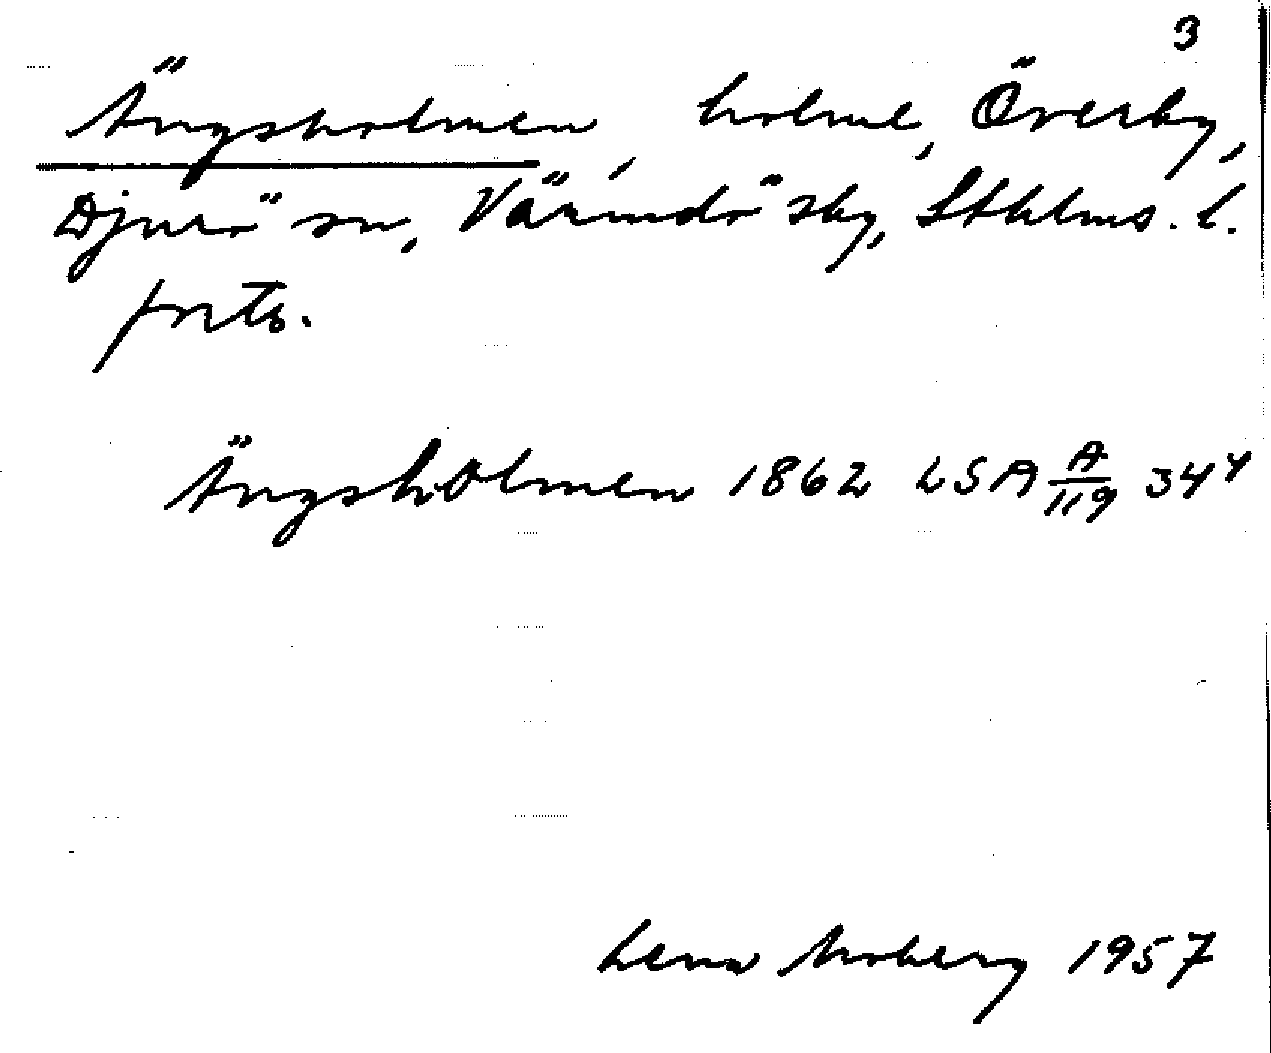 3
Ängsholmen, holme, Överby,
Djurö sn, Värmdö sky, Sthlms. l.
forts.
Ängsholmen 1862 LSA A/119 344
Lena Moberg 1957